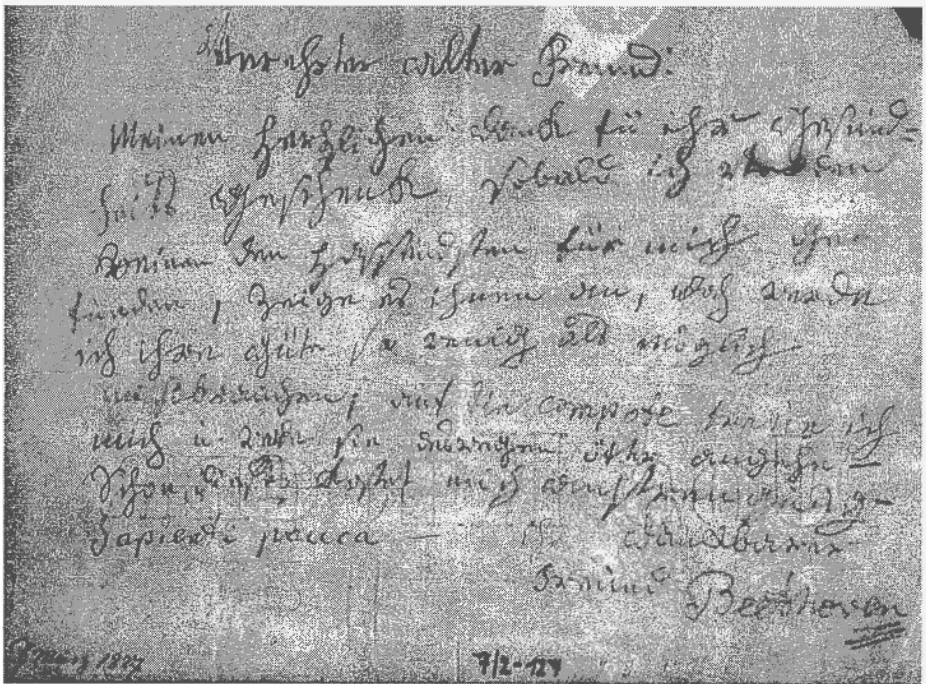 Verehrter alter Freund!
Meinen herzlichen Dank für ihr Gesund-
heits Geschenk, sobald ich den
Weinen den für mich ge-
funden, zeige es ihnen an, doch werde
ich ihre Güte so wenig als möglich
misbrauchen, auf die compote freue ich
mich u. werde sie deswegen öfter angehn —
Schon dieses kostet mich anstrengung —
Sapienti pauca — ihr dankbarer
Freund Beethoven
März 1827 7/2-127